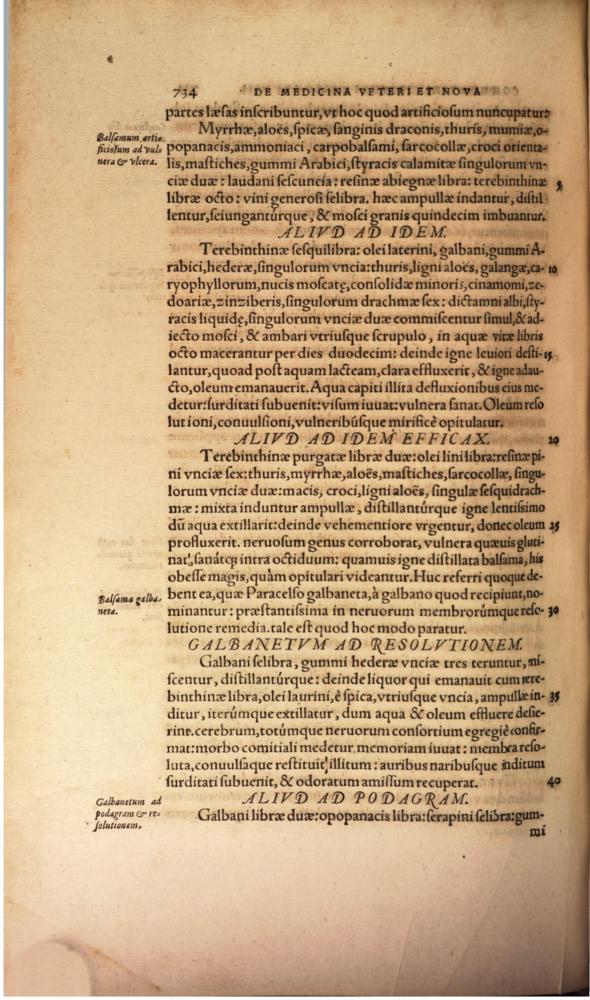 734 DE MEDICINA VETERI ET NOVA
partes læsas inscribuntur, vt hoc quod artificiosum nuncupatur:
Balsamum artificiosum ad vulnera & vlcera.
Myrrhæ, aloës, spicæ, sanginis draconis, thuris, mumiæ, o-
popanacis, ammoniaci, carpobalsami, sarcocollæ, croci orienta-
lis, mastiches, gummi Arabici, styracis calamitæ singulorum vn-
ciæ duæ: laudani sescuncia: resinæ abiegnæ libra: terebinthinæ 5
libræ octo: vini generosi selibra. hæc ampullæ indantur, distil
lentur, seiungantúrque, & mosci granis quindecim imbuantur.
ALIVD AD IDEM.
Terebinthinæ sesquilibra: olei laterini, galbani, gummi A-
rabici, hederæ, singulorum vncia: thuris, ligni aloës, galangæ, ca- 10
ryophyllorum, nucis moscatę, consolidæ minoris, cinamomi, ze-
doariæ, zinziberis, singulorum drachmæ sex: dictamni albi, sty-
racis liquidę, singulorum vnciæ duæ commiscentur simul, & ad-
iecto mosci, & ambari vtriusque scrupulo, in aquæ vitæ libris
octo macerantur per dies duodecim: deinde igne leuiori desti- 15
lantur, quoad post aquam lacteam, clara effluxerit, & igne adau-
cto, oleum emanauerit. Aqua capiti illita defluxionibus eius me-
detur: surditati subuenit: visum iuuat: vulnera sanat. Oleum reso
lutioni, conuulsioni, vulneribúsque mirificè opitulatur.
ALIVD AD IDEM EFFICAX. 20
Terebinthinæ purgatæ libræ duæ: olei lini libra: resinæ pi-
ni vnciæ sex: thuris, myrrhæ, aloës, mastiches, sarcocollæ, singu-
lorum vnciæ duæ: macis, croci, ligni aloës, singulæ sesquidrach-
mæ: mixta induntur ampullæ, distillantúrque igne lentissimo
dũ aqua extillarit: deinde vehementiore vrgentur, donec oleum 25
profluxerit. neruosum genus corroborat, vulnera quæuis gluti-
nat, sanátq; intra octiduum: quamuis igne distillata balsama, his
obesse magis, quàm opitulari videantur. Huc referri quoque de-
Balsama galbaneta.
bent ea, quæ Paracelso galbaneta, à galbano quod recipiunt, no-
minantur: præstantissima in neruorum membrorúmque reso- 30
lutione remedia. tale est quod hoc modo paratur.
GALBANETVM AD RESOLVTIONEM.
Galbani selibra, gummi hederæ vnciæ tres teruntur, mi-
scentur, distillantúrque: deinde liquor qui emanauit cum tere-
binthinæ libra, olei laurini, è spica, vtriusque vncia, ampullæ in- 35
ditur, iterúmque extillatur, dum aqua & oleum effluere desie-
rint. cerebrum, totúmque neruorum consortium egregiè confir-
mat: morbo comitiali medetur. memoriam iuuat: membra reso-
luta, conuulsaque restituit illitum: auribus naribusque inditum
surditati subuenit, & odoratum amissum recuperat. 40
Galbanetum ad podagram & resolutionem.
ALIVD AD PODAGRAM.
Galbani libræ duæ: opopanacis libra: serapini selibra: gum-
mi